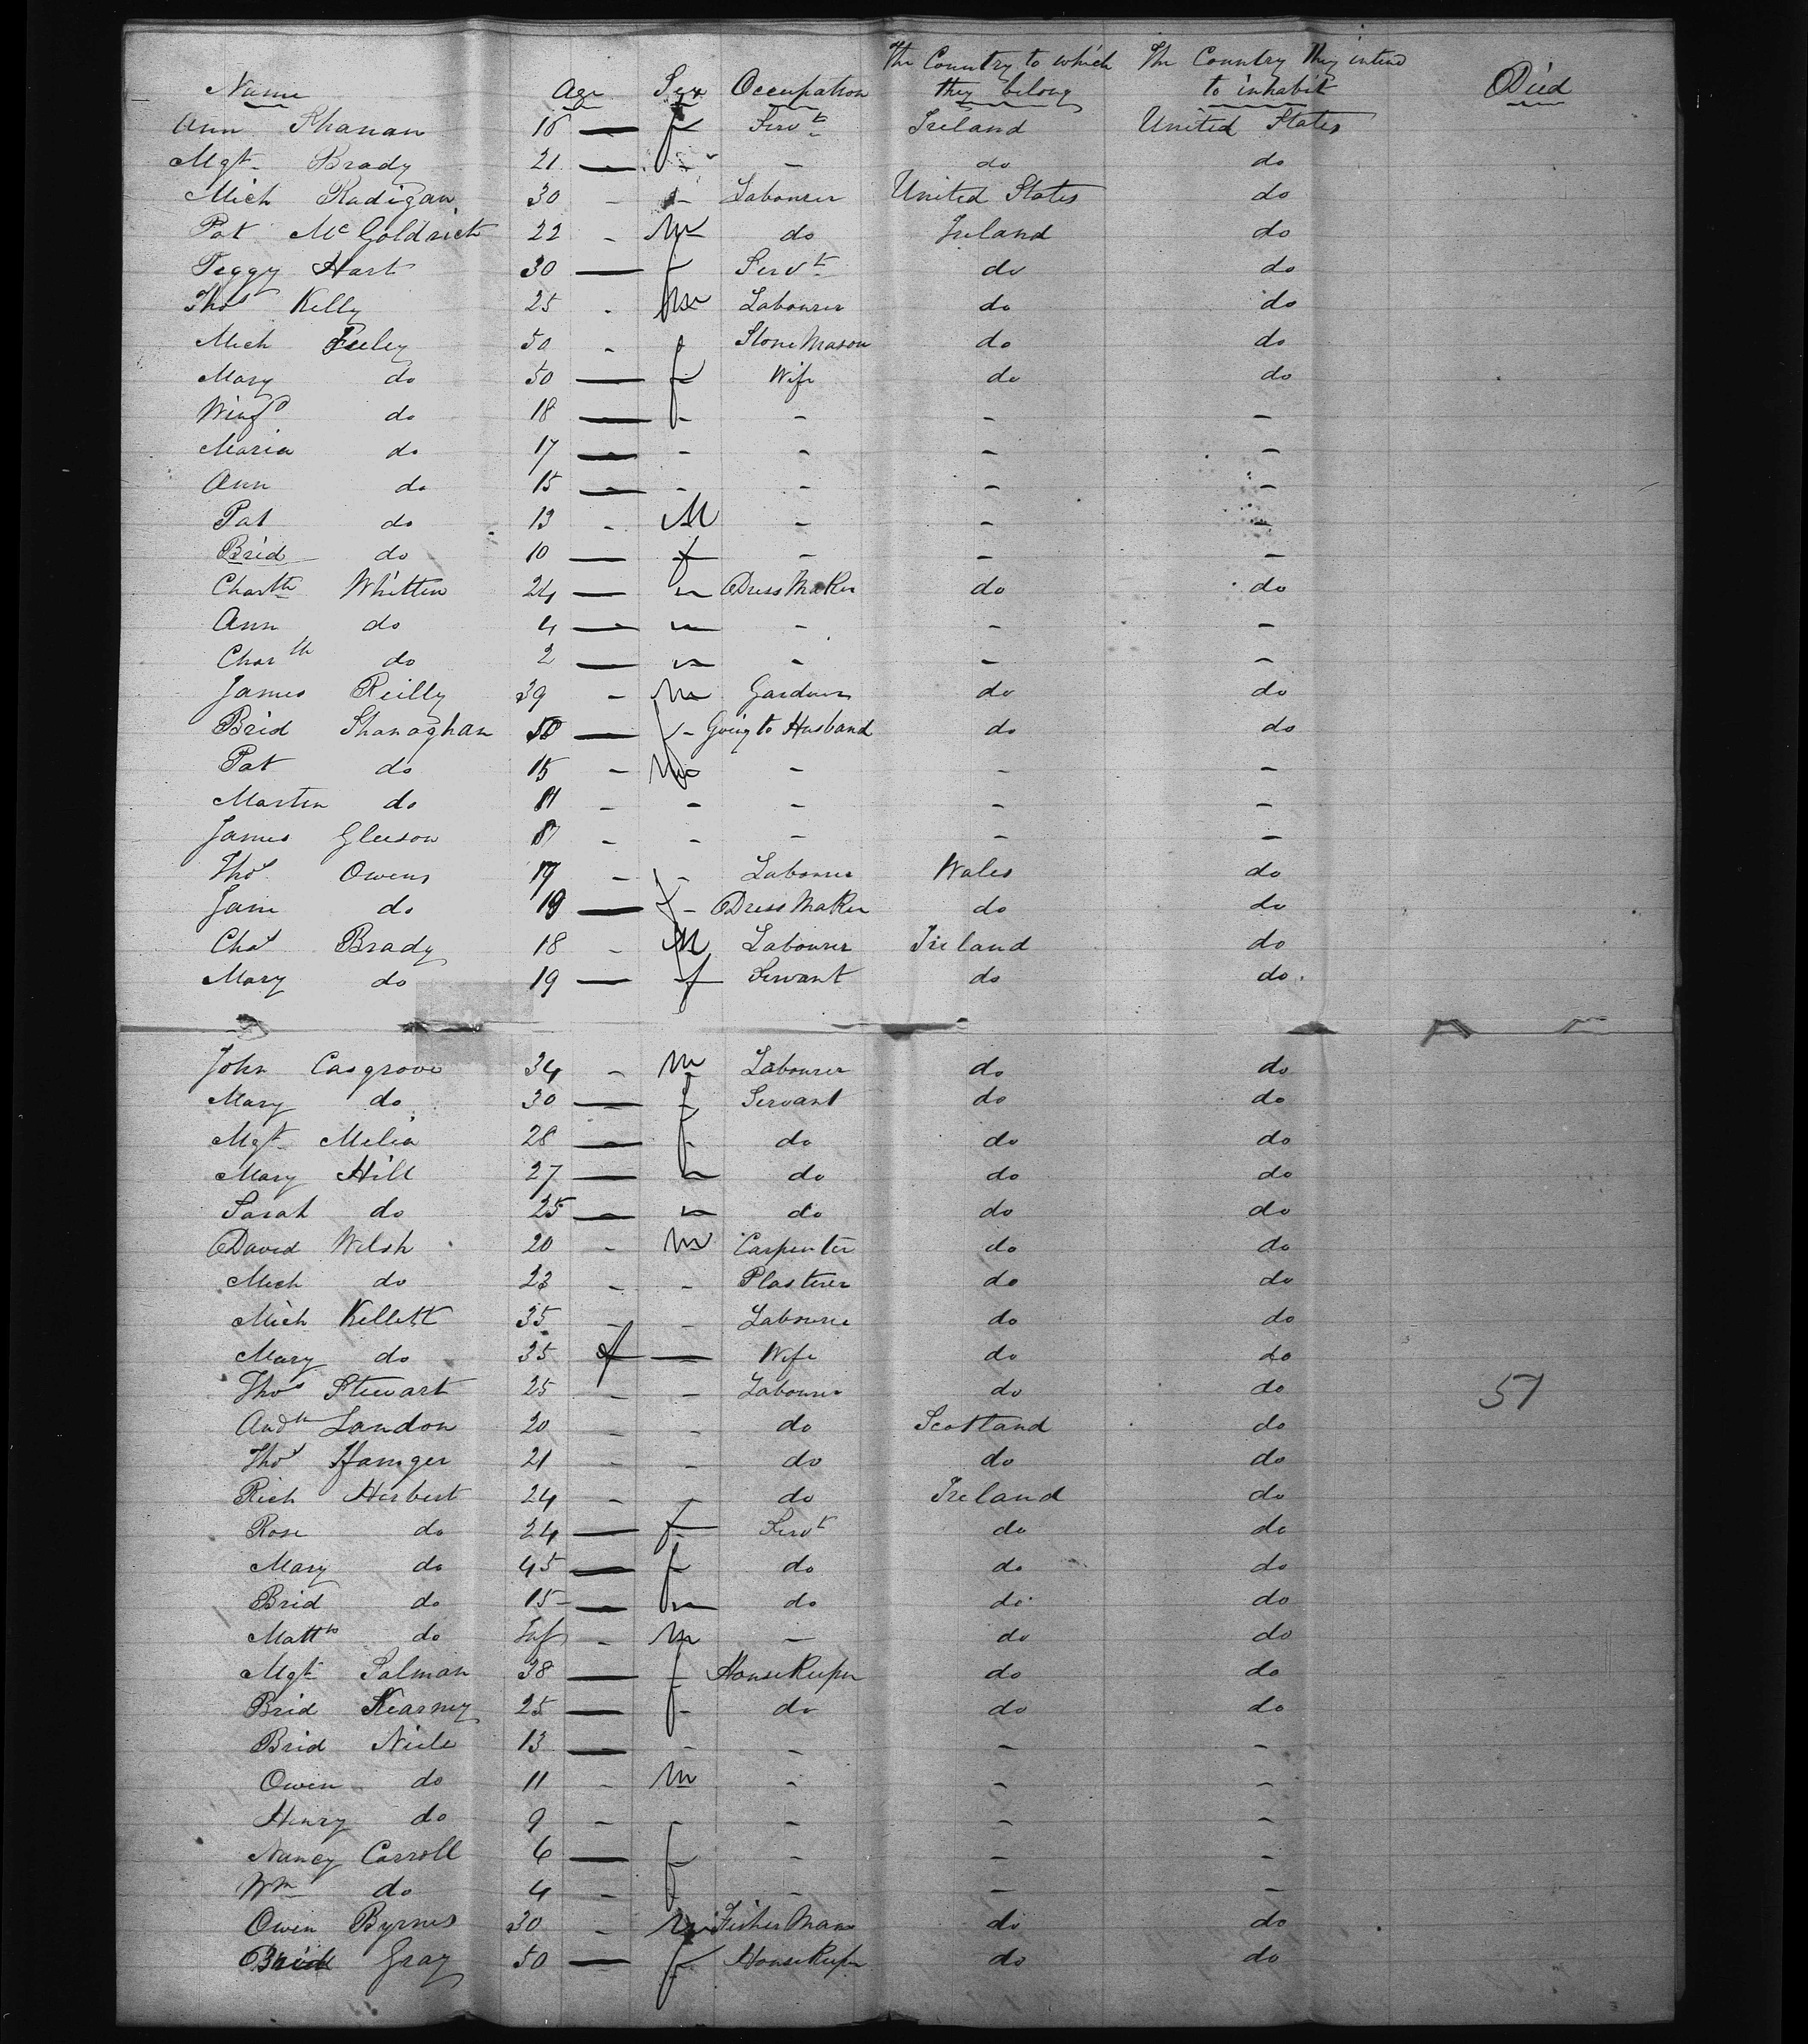 Name Age Sex Occupation The Country to which they belong The Country they intend to inhabit Died
Ann Shanan 16 — f Servt Ireland United States
Mgt Brady 21 — - - do do
Mich Radigan 30 - - Labourer United States do
Pat McGoldrick 22 - M do Ireland do
Peggy Hart 30 — f Servt do do
Thos Kelly 25 - M Labourer do do
Mich Feeley 50 - Stone Mason do do
Mary do 50 — f Wife do do
Wing do 18 — f - - -
Maria do 17 — - - - -
Ann do 15 — - - - -
Pat do 13 - M - - -
Brid do 10 — f - - -
Charth Whitten 24 — - Dress Maker do do
Ann do 4 — - - - -
Charth do 2 — - - - -
James Reilly 39 - M Gardner do do
Brid Shanaghan 50 — f Going to Husband do do
Pat do 15 - M - - -
Martin do 11 - - - - -
James Gleeson 8 - - - - -
Thos Owens 17 - - Labourer Wales do
Jane do 19 — f Dress Maker do do
Chas Brady 18 - M Labourer Ireland do
Mary do 19 — f Servant do do
John Casgrove 34 - M Labourer do do
Mary do 30 — f Servant do do
Mgt Melia 28 — f do do do
Mary Hill 27 — - do do do
Sarah do 25 — - do do do
David Welsh 20 - M Carpenter do do
Mich do 23 - - Plasterer do do
Mich Kellett 35 - - Labourer do do
Mary do 35 f — Wife do do
Thos Stewart 25 - - Labourer do do 57
Andw Landon 20 - - do Scotland do
Thos 21 - - do do do
Rich Herbert 24 - - do Ireland do
Rose do 24 — f Servt do do
Mary do 45 — f do do do
Brid do 15 — - do do do
Matths do Inf - M - do do
Mgt Salman 38 — f House Keeper do do
Brid Kearney 25 — f do do do
Brid Niele 13 — - - - -
Owen do 11 - M - - -
Henry do 9 - - - - -
Nancy Carroll 6 — f - - -
Wm do 4 - - - -
Owen Byrnes 30 - M Fisher Man do do
Brid Gray 50 — f House Keeper do do